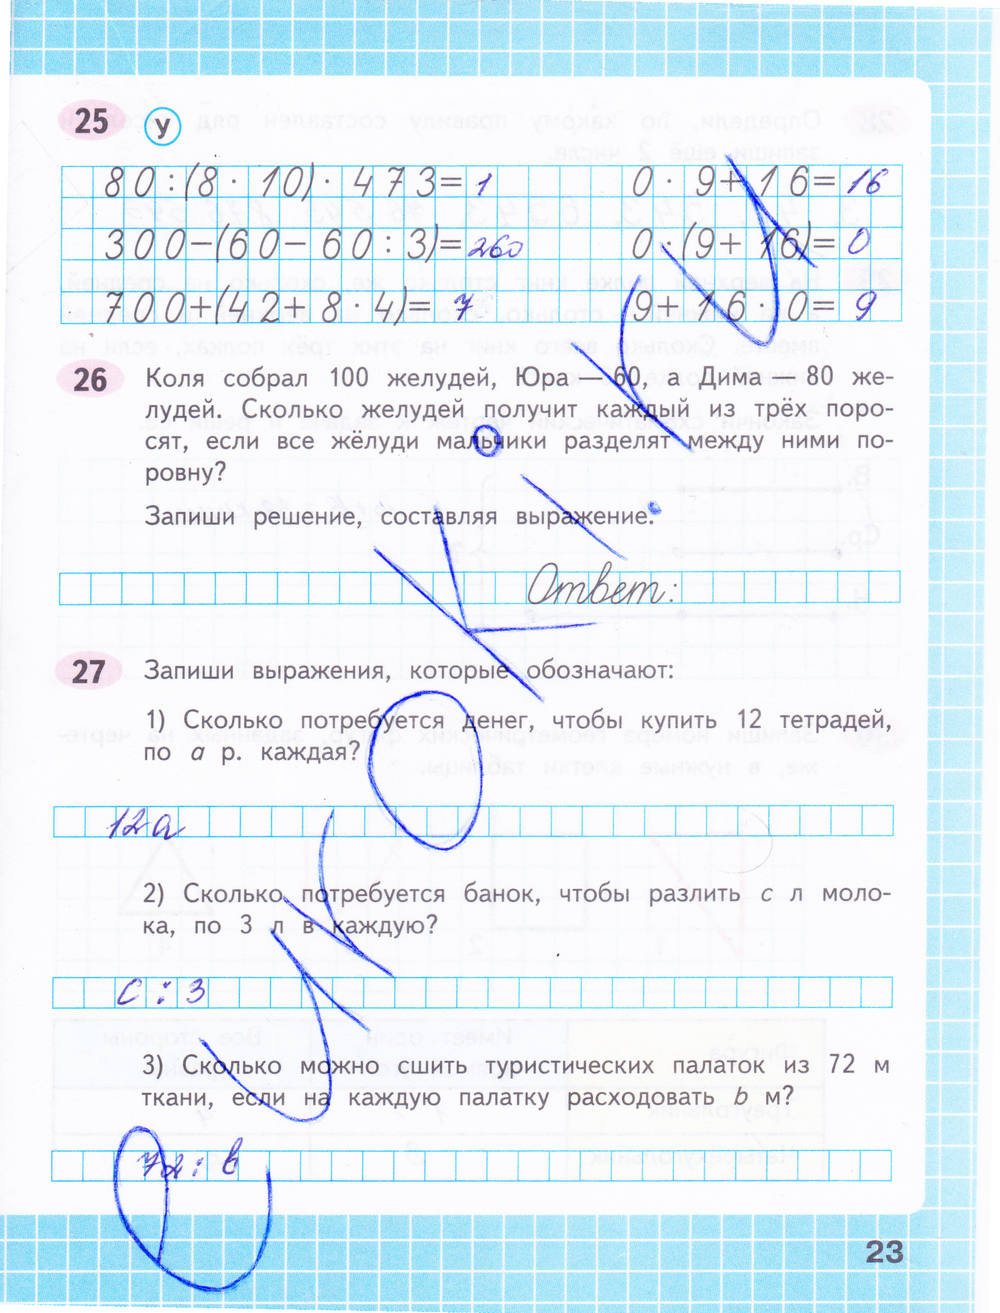 25 У
80:(8·10)·473=1 0·9+16=16
300-(60-60:3)=260 0·(9+16)=0
700+(42+8·4)=7 9+16·0=9
26 Коля собрал 100 желудей, Юра — 60, а Дима — 80 же-
лудей. Сколько желудей получит каждый из трёх поро-
сят, если все жёлуди мальчики разделят между ними по-
ровну?
Запиши решение, составляя выражение.
Ответ:
27 Запиши выражения, которые обозначают:
1) Сколько потребуется денег, чтобы купить 12 тетрадей,
по a р. каждая?
12a
2) Сколько потребуется банок, чтобы разлить c л моло-
ка, по 3 л в каждую?
c:3
3) Сколько можно сшить туристических палаток из 72 м
ткани, если на каждую палатку расходовать b м?
72:b
23